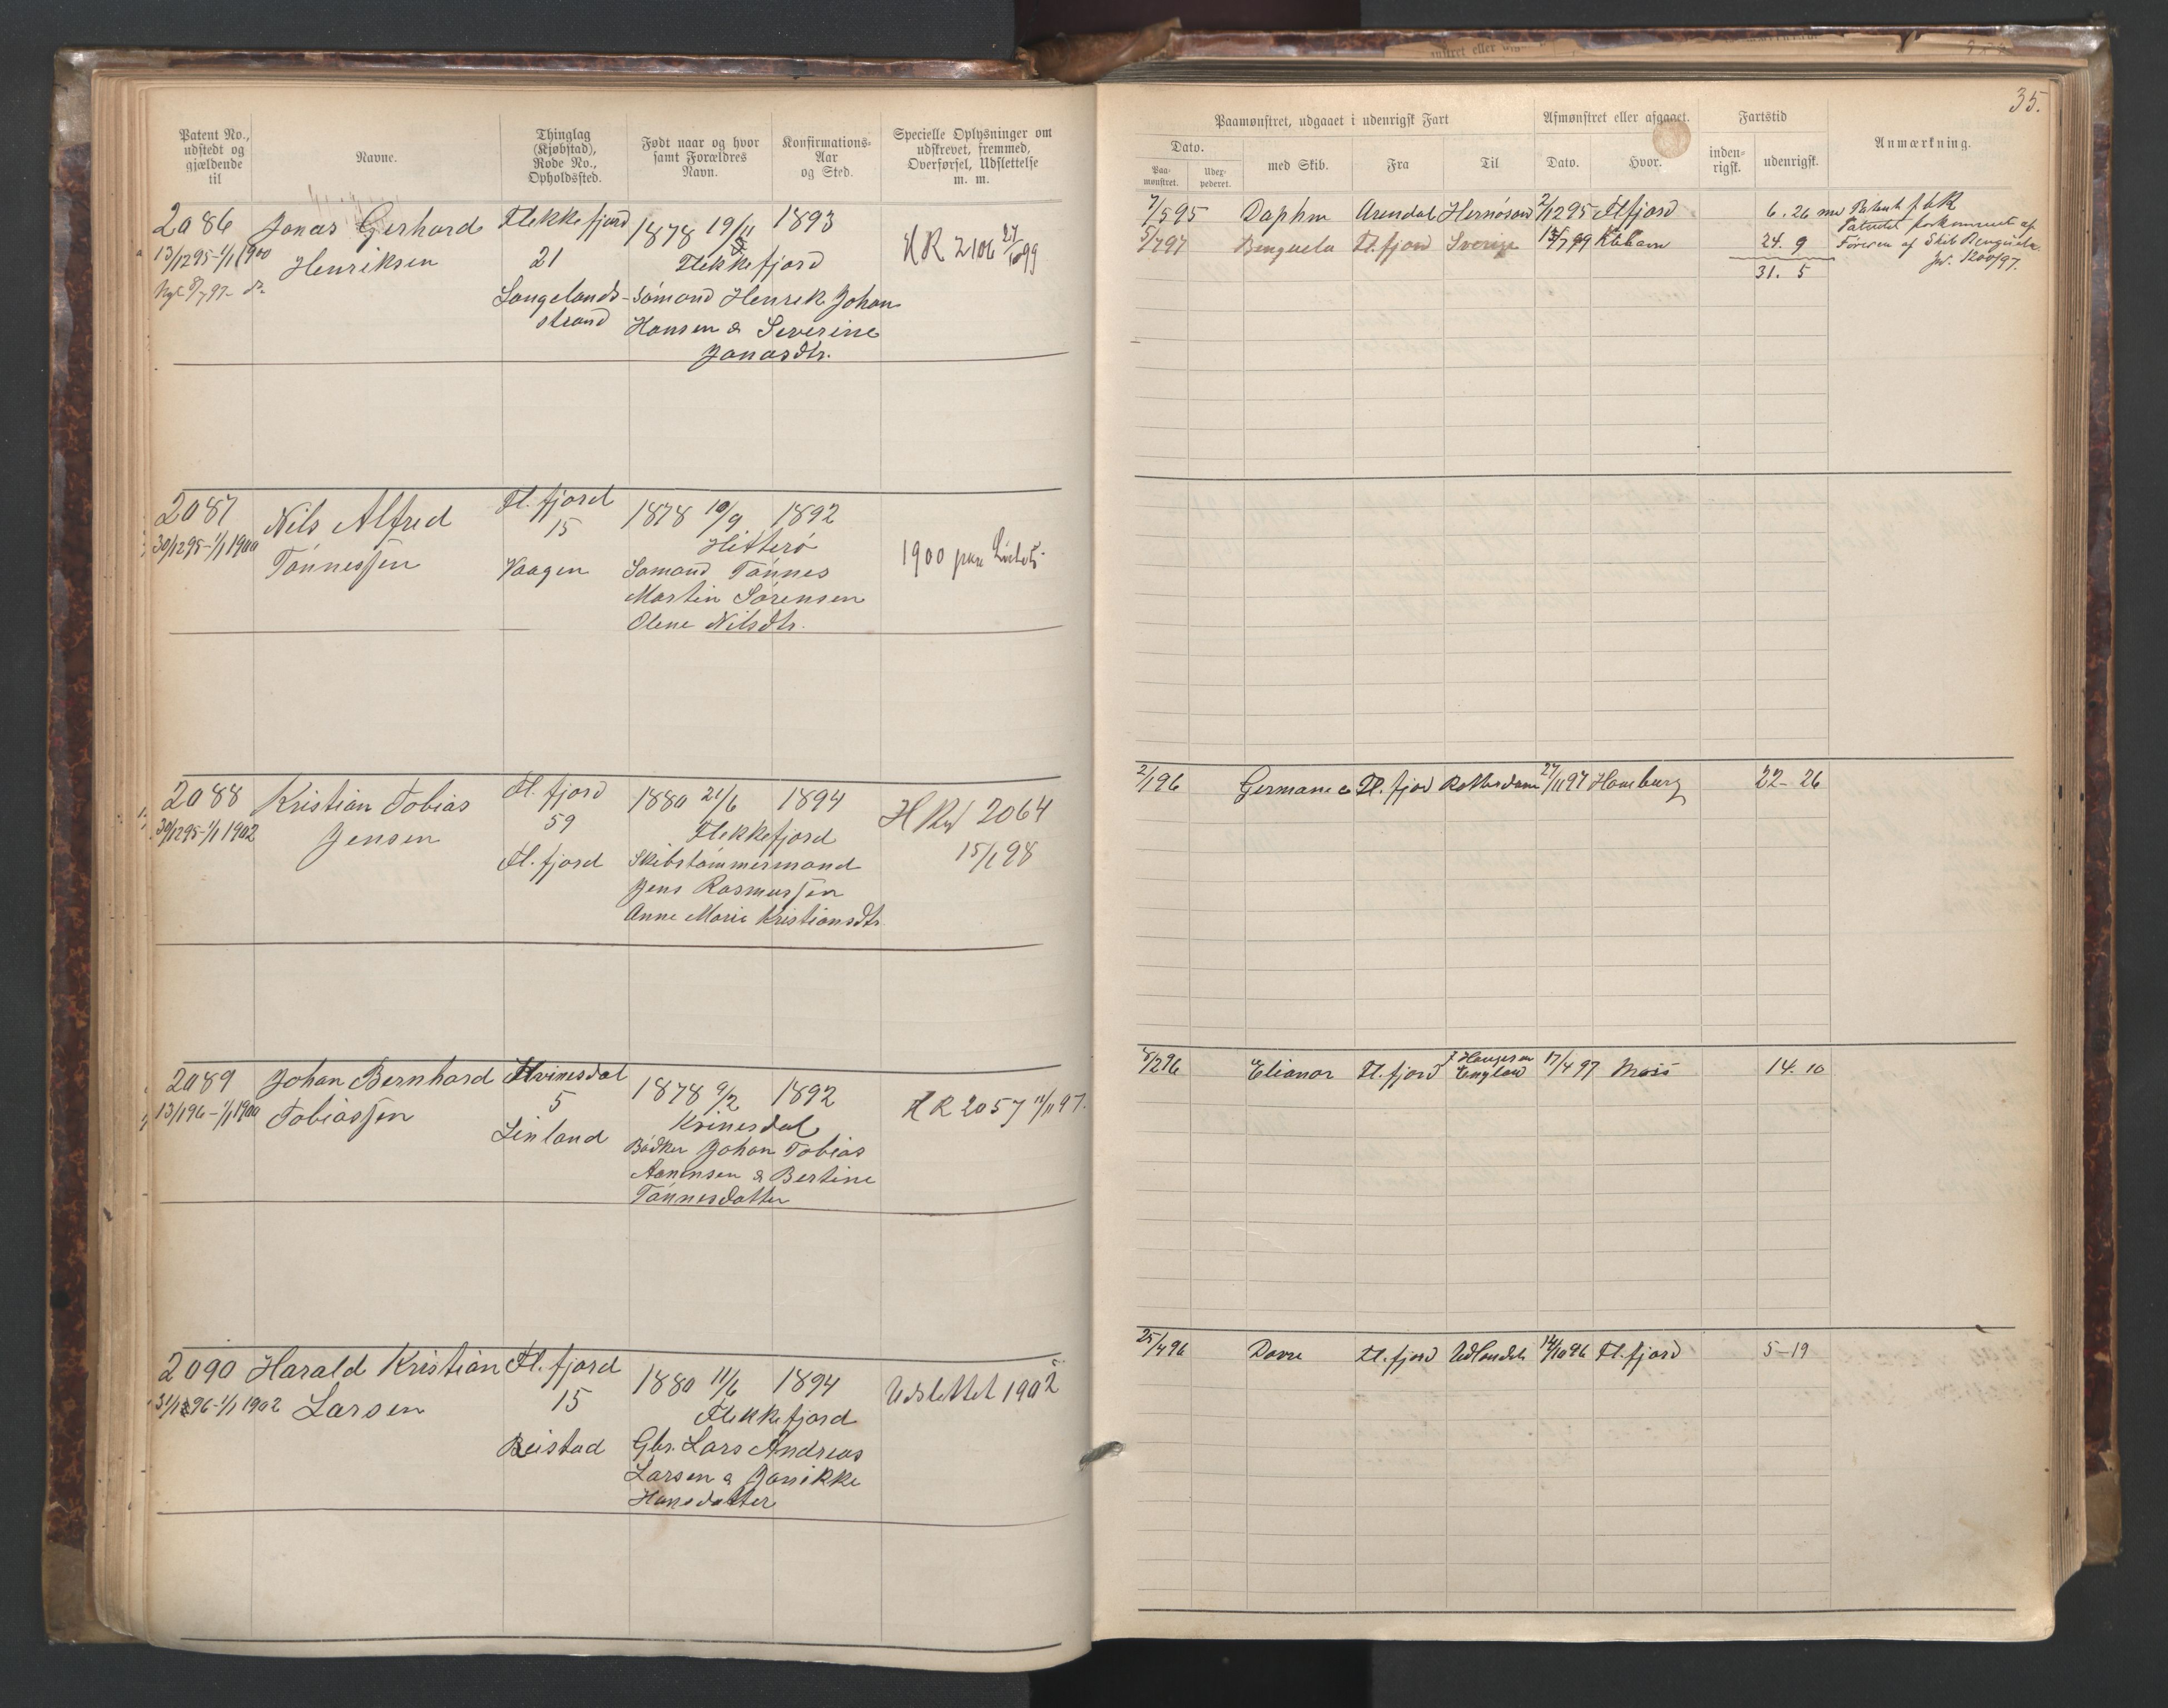 35.
Patent No., udstedt og gjældende til
Navne.
Thinglag (Kjøbstad), Rode No., Opholdssted.
Født naar og hvor samt Forældres Navn.
Konfirmations-Aar og Sted.
Specielle Oplysninger om udskrevet, fremmed, Overførsel, Udslettelse m. m.
Paamønstret, udgaaet i udenrigsk Fart
Dato.
Paa-mønstret.
Udex-pederet.
med Skib.
Fra
Til
Afmønstret eller afgaaet.
Dato.
Hvor.
Fartstid
inden-rigsk.
udenrigsk.
Anmærkning.
2086
13/1295-1/1 1900
Jonas Gerhard
Henriksen
Flekkefjord
21
Langelands-
strand
1878 19/11 1893
Flekkefjord
Sömand Henrik Johan
Hansen & Severine
Jonasdtr.
HR 2106
7/5 95 Daphne Arendal Hernösand 2/12 95 Flfjord 6. 26
5/7 97 Benguela Fl.fjord Sverige 13/7 99 Kbhavn 24. 9
31. 5
Patentet forkommet af
Föreren af Skib Benguela
Jr. 1200/97.
2087
30/1295-1/1 1900
Nils Alfred
Tönnessen
Fl. fjord
15
Vaagen
1878 10/9 1892
Hitterö
Sömand Tönnes
Martin Sörensen
Olene Nilsdtr.
1900
2088
30/1295-1/1 1902
Kristian Tobias
Jensen
Fl. fjord
59
Fl. fjord
1880 21/6 1894
Flekkefjord
Skibstömmermand
Jens Rasmussen
Anne Marie Kristiansdtr.
2064
15/1 98
2/1 96 Germanica Fl. fjord Rotterdam 27/11 97 Hamburg 22 - 26
2089
13/1 96-1/1 1900
Johan Bernhard
Tobiassen
Kvinesdal
5
Linland
1878 9/2 1892
Kvinesdal
Bödker Johan Tobias
Aanensen & Bertine
Tönnesdatter
HR 2057 11/11 97.
8/2 96 Elianor Fl. fjord England 17/4 97 Moss 14. 10
2090
31/1 96-1/1 1902
Harald Kristian
Larsen
Fl. fjord
15
Beistad
1880 11/6 1894
Flekkefjord
Gbr. Lars Andreas
Larsen & Janikke
Hansdatter
Udslettet 1902
25/4 96 Dovre Fl. fjord Udlandet 14/10 96 Fl. fjord 5-19